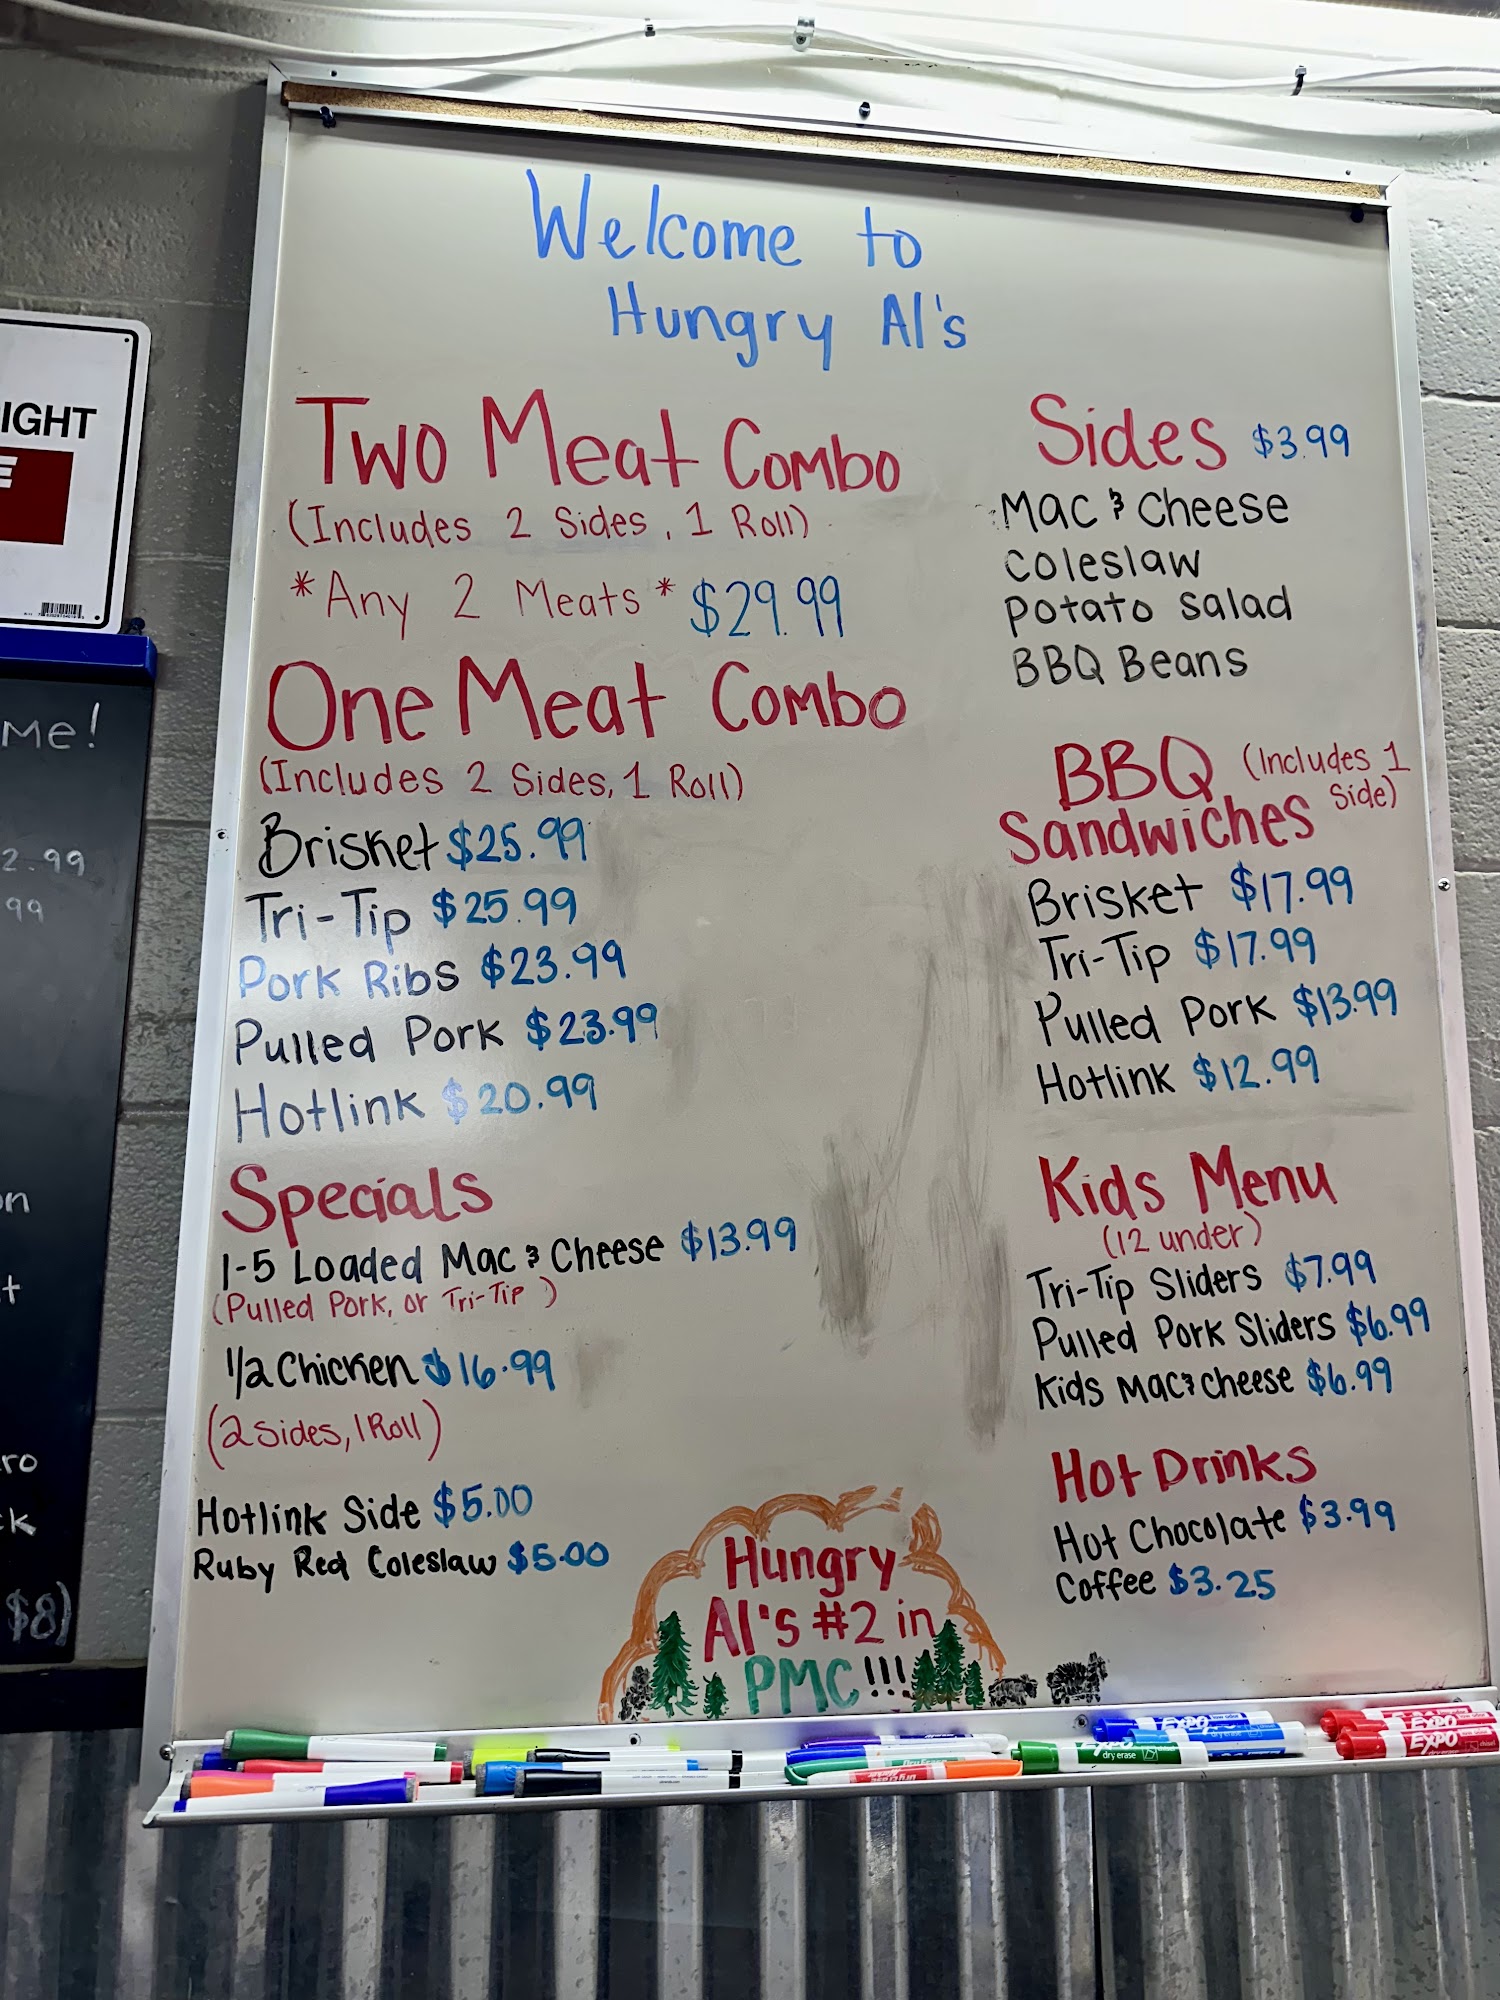 Welcome to
Hungry Al's
Two Meat Combo
(Includes 2 Sides, 1 Roll)
*Any 2 Meats* $29.99
One Meat Combo
(Includes 2 Sides, 1 Roll)
Brisket $25.99
Tri-Tip $25.99
Pork Ribs $23.99
Pulled Pork $23.99
Hotlink $20.99
Specials
1-5 Loaded Mac & Cheese $13.99
(Pulled Pork, or Tri-Tip )
1/2 Chicken $16.99
(2 sides, 1 Roll)
Hotlink Side $5.00
Ruby Red Coleslaw $5.00
Sides $3.99
Mac & Cheese
Coleslaw
Potato Salad
BBQ Beans
BBQ (Includes 1
Sandwiches Side)
Brisket $17.99
Tri-Tip $17.99
Pulled Pork $13.99
Hotlink $12.99
Kids Menu
(12 under)
Tri-Tip Sliders $7.99
Pulled Pork Sliders $6.99
Kids Mac & Cheese $6.99
Hot Drinks
Hot Chocolate $3.99
Coffee $3.25
Hungry
Al's #2 in
PMC!!!
IGHT
E
Me!
2.99
99
on
t
ro
ck
$8)
EXPO low odor
EXPO
dry erase
EXPO
EXPO